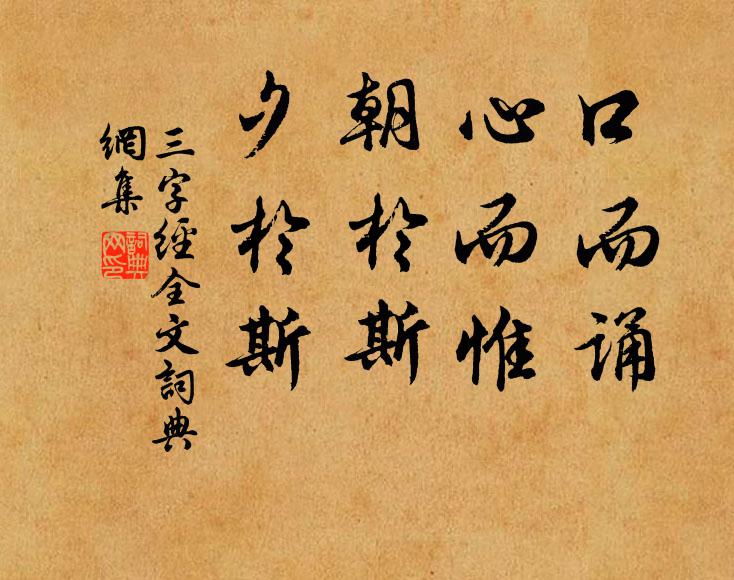 口而诵
心而惟
朝於斯
夕於斯
三字經全文詞典
網集
詞典
网印